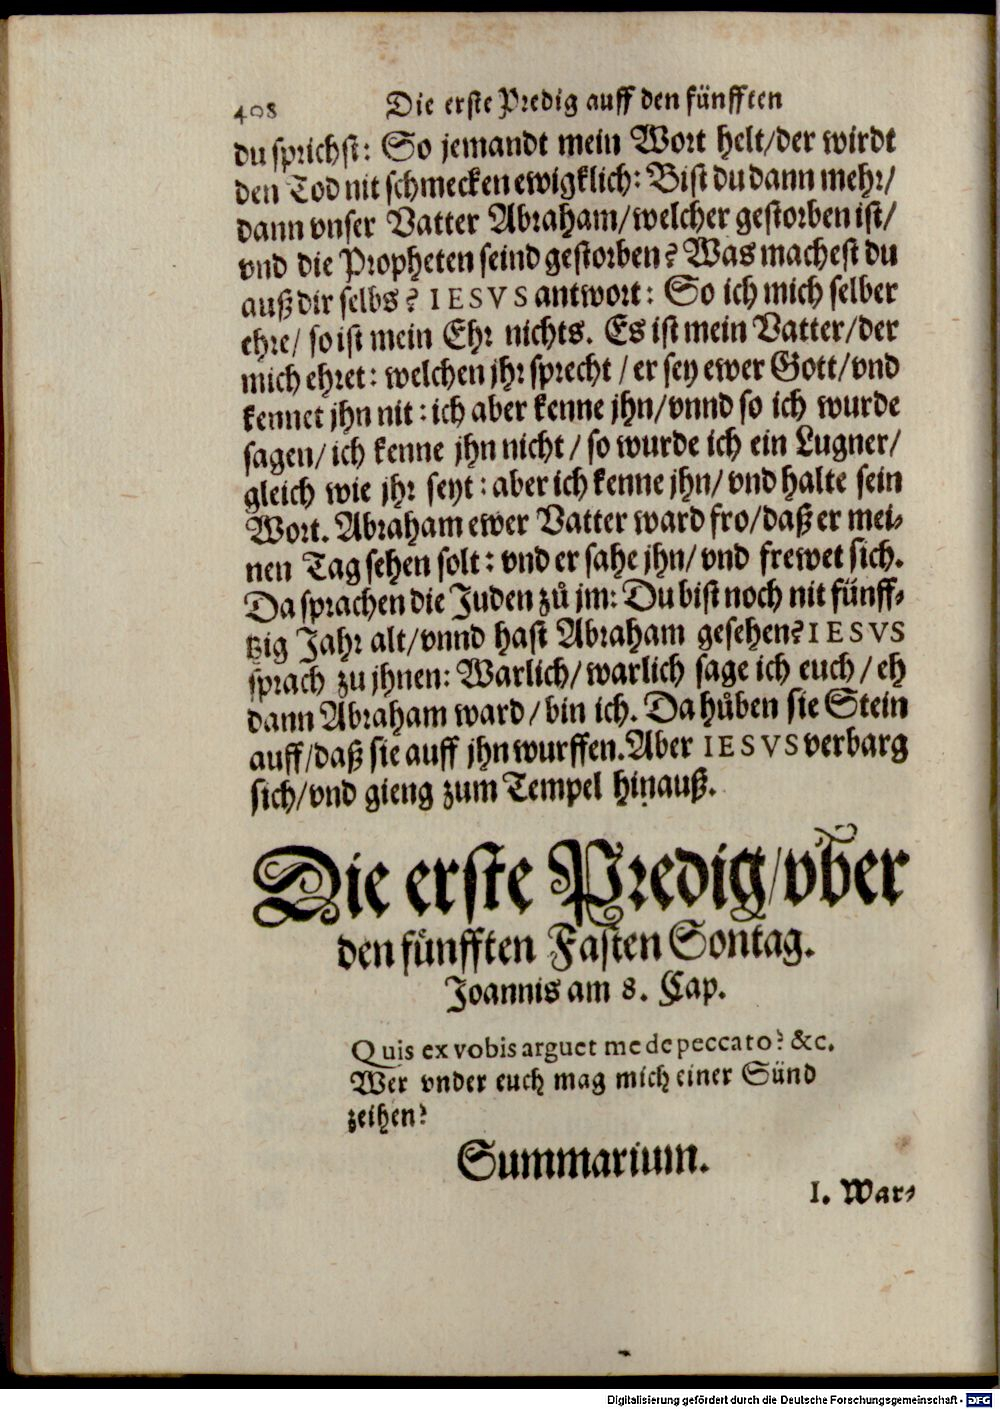 408 Die erste Predig auff den fünfften
du sprichst: So jemandt mein Wort helt/der wirdt
den Tod nit schmecken ewigklich: Bist du dann mehr/
dann vnser Vatter Abraham/welcher gestorben ist/
vnd die Propheten seind gestorben? Was machest du
auß dir selbs? IESVS antwort: So ich mich selber
ehre/ so ist mein Ehr nichts. Es ist mein Vatter/der
mich ehret: welchen jhr sprecht / er sey ewer Gott/vnd
kennet jhn nit: ich aber kenne jhn/vnnd so ich wurde
sagen/ ich kenne jhn nicht / so wurde ich ein Lugner/
gleich wie jhr seyt: aber ich kenne jhn/ vnd halte sein
Wort. Abraham ewer Vatter ward fro/daß er mei-
nen Tag sehen solt: vnd er sahe jhn/ vnd frewet sich.
Da sprachen die Juden zů jm: Du bist noch nit fünff-
tzig Jahr alt/vnnd hast Abraham gesehen? IESVS
sprach zu jhnen: Warlich/ warlich sage ich euch / eh
dann Abraham ward / bin ich. Da hůben sie Stein
auff/daß sie auff jhn wurffen. Aber IESVS verbarg
sich/vnd gieng zum Tempel hinauß.
Die erste Predig/vber
den fünfften Fasten Sontag.
Joannis am 8. Cap.
Quis ex vobis arguet me de peccato? &c.
Wer vnder euch mag mich einer Sünd
zeihen?
Summarium.
I. War-
Digitalisierung gefördert durch die Deutsche Forschungsgemeinschaft - DFG